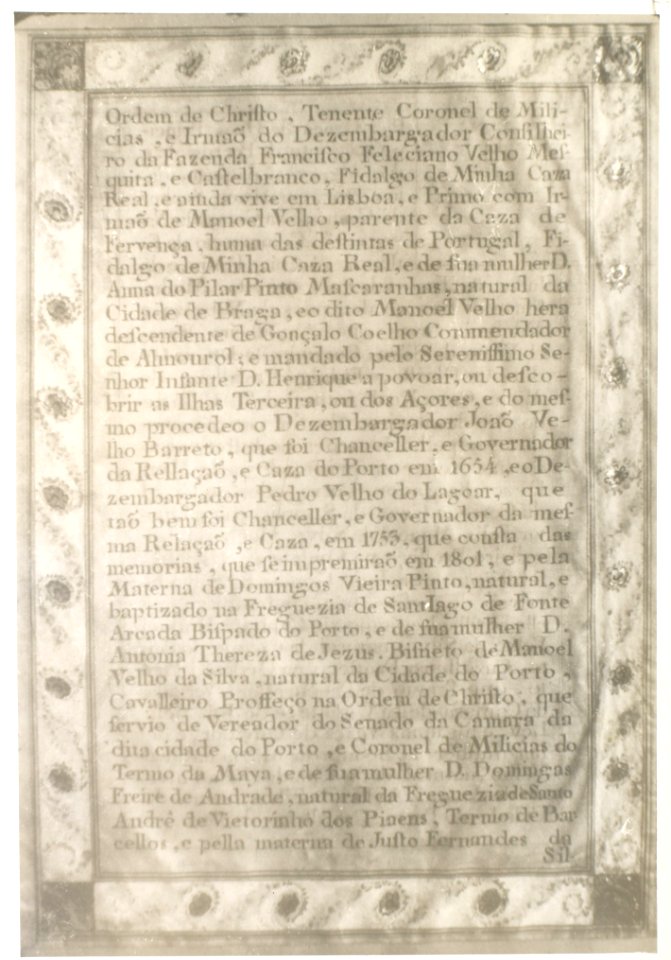 Ordem de Chriſto, Tenente Coronel de Mili-
cias, e Irmaõ do Dezembargador Conſilhei-
ro da Fazenda Franciſco Feleciano Velho Meſ-
quita, e Caſtelbranco, Fidalgo de Minha Caza
Real, e ainda vive em Lisboa, e Primo com Ir-
maõ de Manoel Velho, parente da Caza de
Fervença, huma das deſtintas de Portugal, Fi-
dalgo de Minha Caza Real, e de ſua mulher D.
Anna do Pilar Pinto Maſcaranhas, natural da
Cidade de Braga, e o dito Manoel Velho hera
deſcendente de Gonçalo Coelho Commendador
de Almourol: e mandado pelo Sereniſſimo Se-
nhor Infante D. Henrique a povoar, ou deſco-
brir as Ilhas Terceira, ou dos Açores, e do meſ-
mo procedeo o Dezembargador Joaõ Ve-
lho Barreto, que foi Chanceller, e Governador
da Rellaçaõ, e Caza do Porto em 1654, e o De-
zembargador Pedro Velho do Lagoar, que
taõ bem foi Chanceller, e Governador da meſ-
ma Relaçaõ, e Caza, em 1753, que conſta das
memorias, que ſe impremiraõ em 1801, e pela
Materna de Domingos Vieira Pinto, natural, e
baptizado na Freguezia de Santiago de Fonte
Arcada Biſpado do Porto, e de ſua mulher D.
Antonia Thereza de Jezus. Biſneto de Manoel
Velho da Silva, natural da Cidade do Porto,
Cavalleiro Proffeço na Ordem de Chriſto, que
ſervio de Vereador do Senado da Camara da
dita cidade do Porto, e Coronel de Milicias do
Termo da Maya, e de ſua mulher D. Domingas
Freire de Andrade, natural da Freguezia de Santo
Andrê de Victorinho dos Piaens, Termo de Bar
cellos, e pella materna de Juſto Fernandes da
Sil